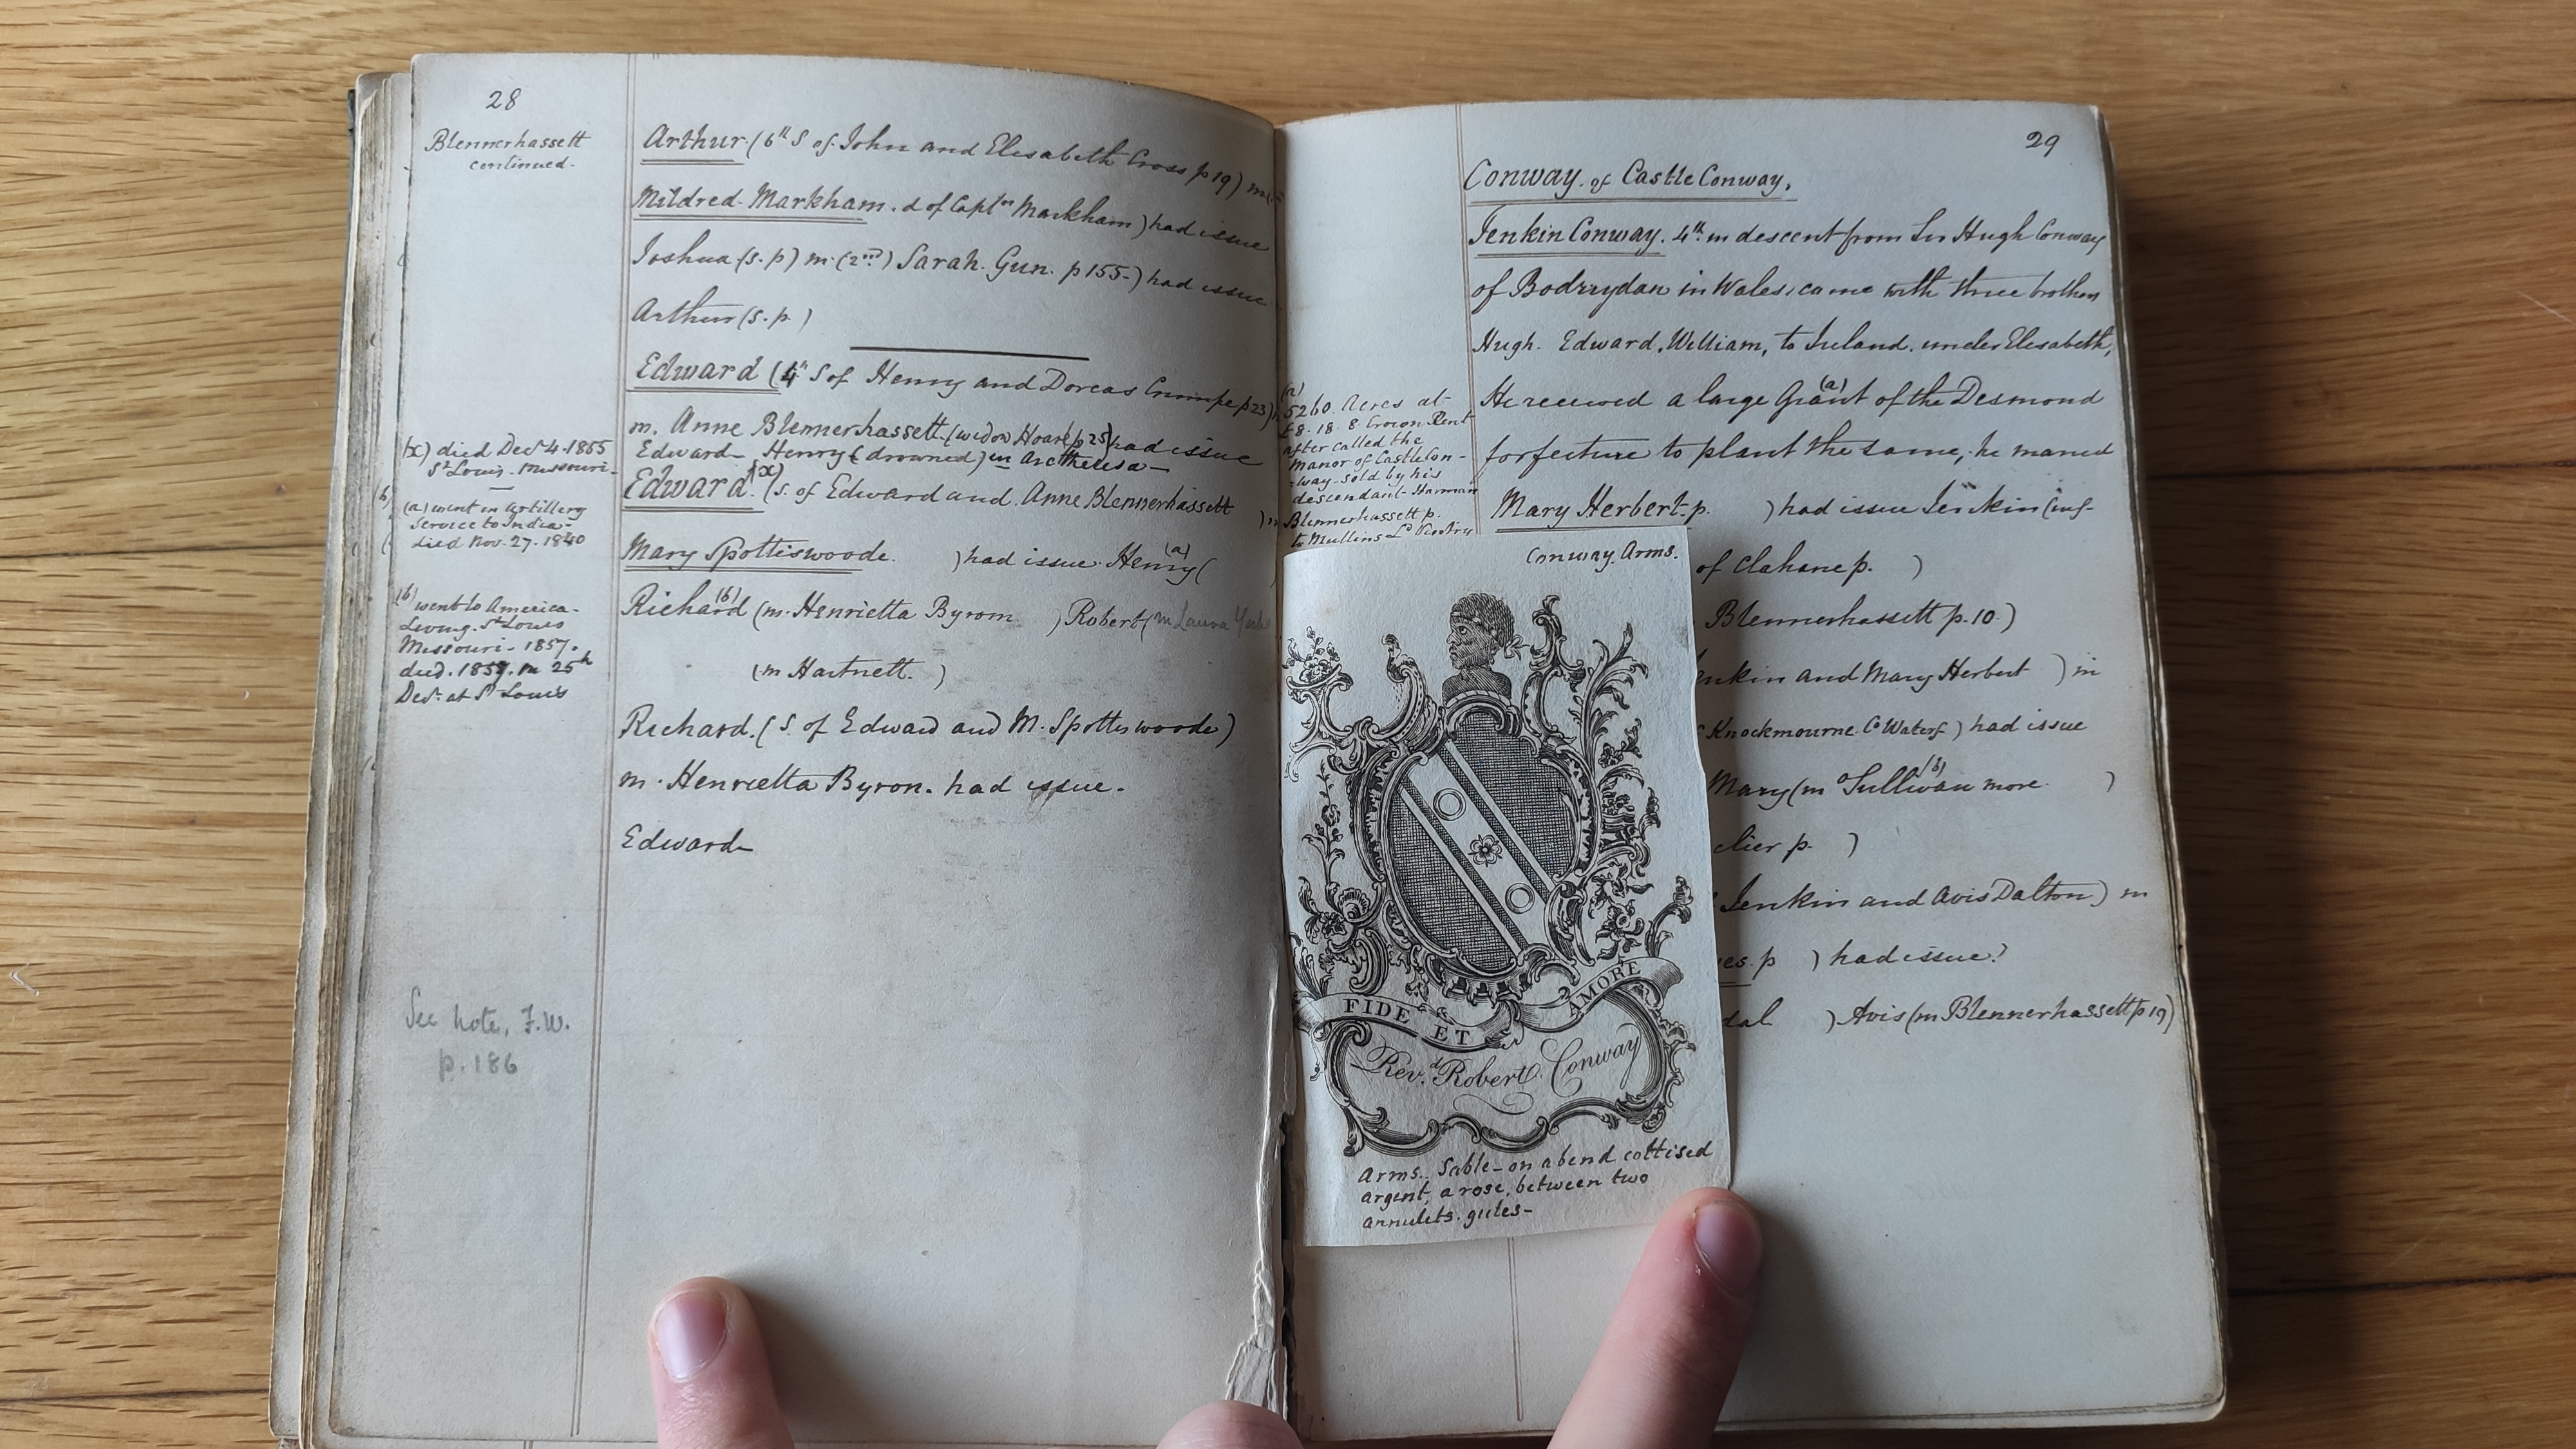 28
Blennerhassett
continued.
Arthur. (6th S of John and Elisabeth Cross p 19) m
Mildred Markham. d of Captn Markham) had issue
Joshua (s. p) m. (2nd) Sarah. Gun. p 155-) had issue
Arthur (s. p.)
Edward (4th S of Henry and Dorcas Crumpe p 23)
m. Anne Blennerhassett. (widow Hoare p 25) had issue
Edward - Henry (drowned) in Arethusa -
(x) died Decr 4. 1855
St Louis. Missouri-
Edward. (x) (s. of Edward and Anne Blennerhassett) m
(a) went in Artillery
Service to India-
died Nov. 27. 1840
Mary Spottiswoode. ) had issue. Henry (a) (
(b) went to America-
Living. St Louis
Missouri - 1857.
died. 1857. in 25th
Decr. at St Louis
Richard (b) (m. Henrietta Byrom ) Robert (m Laura
(m Hartnett. )
Richard. (s. of Edward and M. Spottiswoode)
m. Henrietta Byron. had issue.
Edward
See note, F.W.
p. 186
29
Conway. of Castle Conway.
Jenkin Conway. 4th in descent from Sir Hugh Conway
of Bodrrydan in Wales, came with three brothers
Hugh. Edward. William, to Ireland. under Elisabeth,
He received a large Grant (a) of the Desmond
forfeiture to plant the same, he married
Mary Herbert. p. ) had issue Jenkin
(a)
5260. Acres at
£8. 18. 8 Crown Rent
after called the
Manor of Castle Con-
-way- sold by his
descendant Harman
Blennerhassett p.
to Mullins Ld Ventry
of Clahane p. )
Blennerhassett p. 10)
enkin and Mary Herbert ) m
Knockmourne. Co Waterf) had issue
Mary (m O'Sullivan (b) more )
clier p. )
Jenkin and Avis Dalton) m
es. p ) had issue?
dal ) Avis (m Blennerhassett p 19)
Conway. Arms.
FIDE ET AMORE
Revd. Robert Conway
Arms. Sable - on a bend cottised
argent, a rose, between two
annulets. gules-